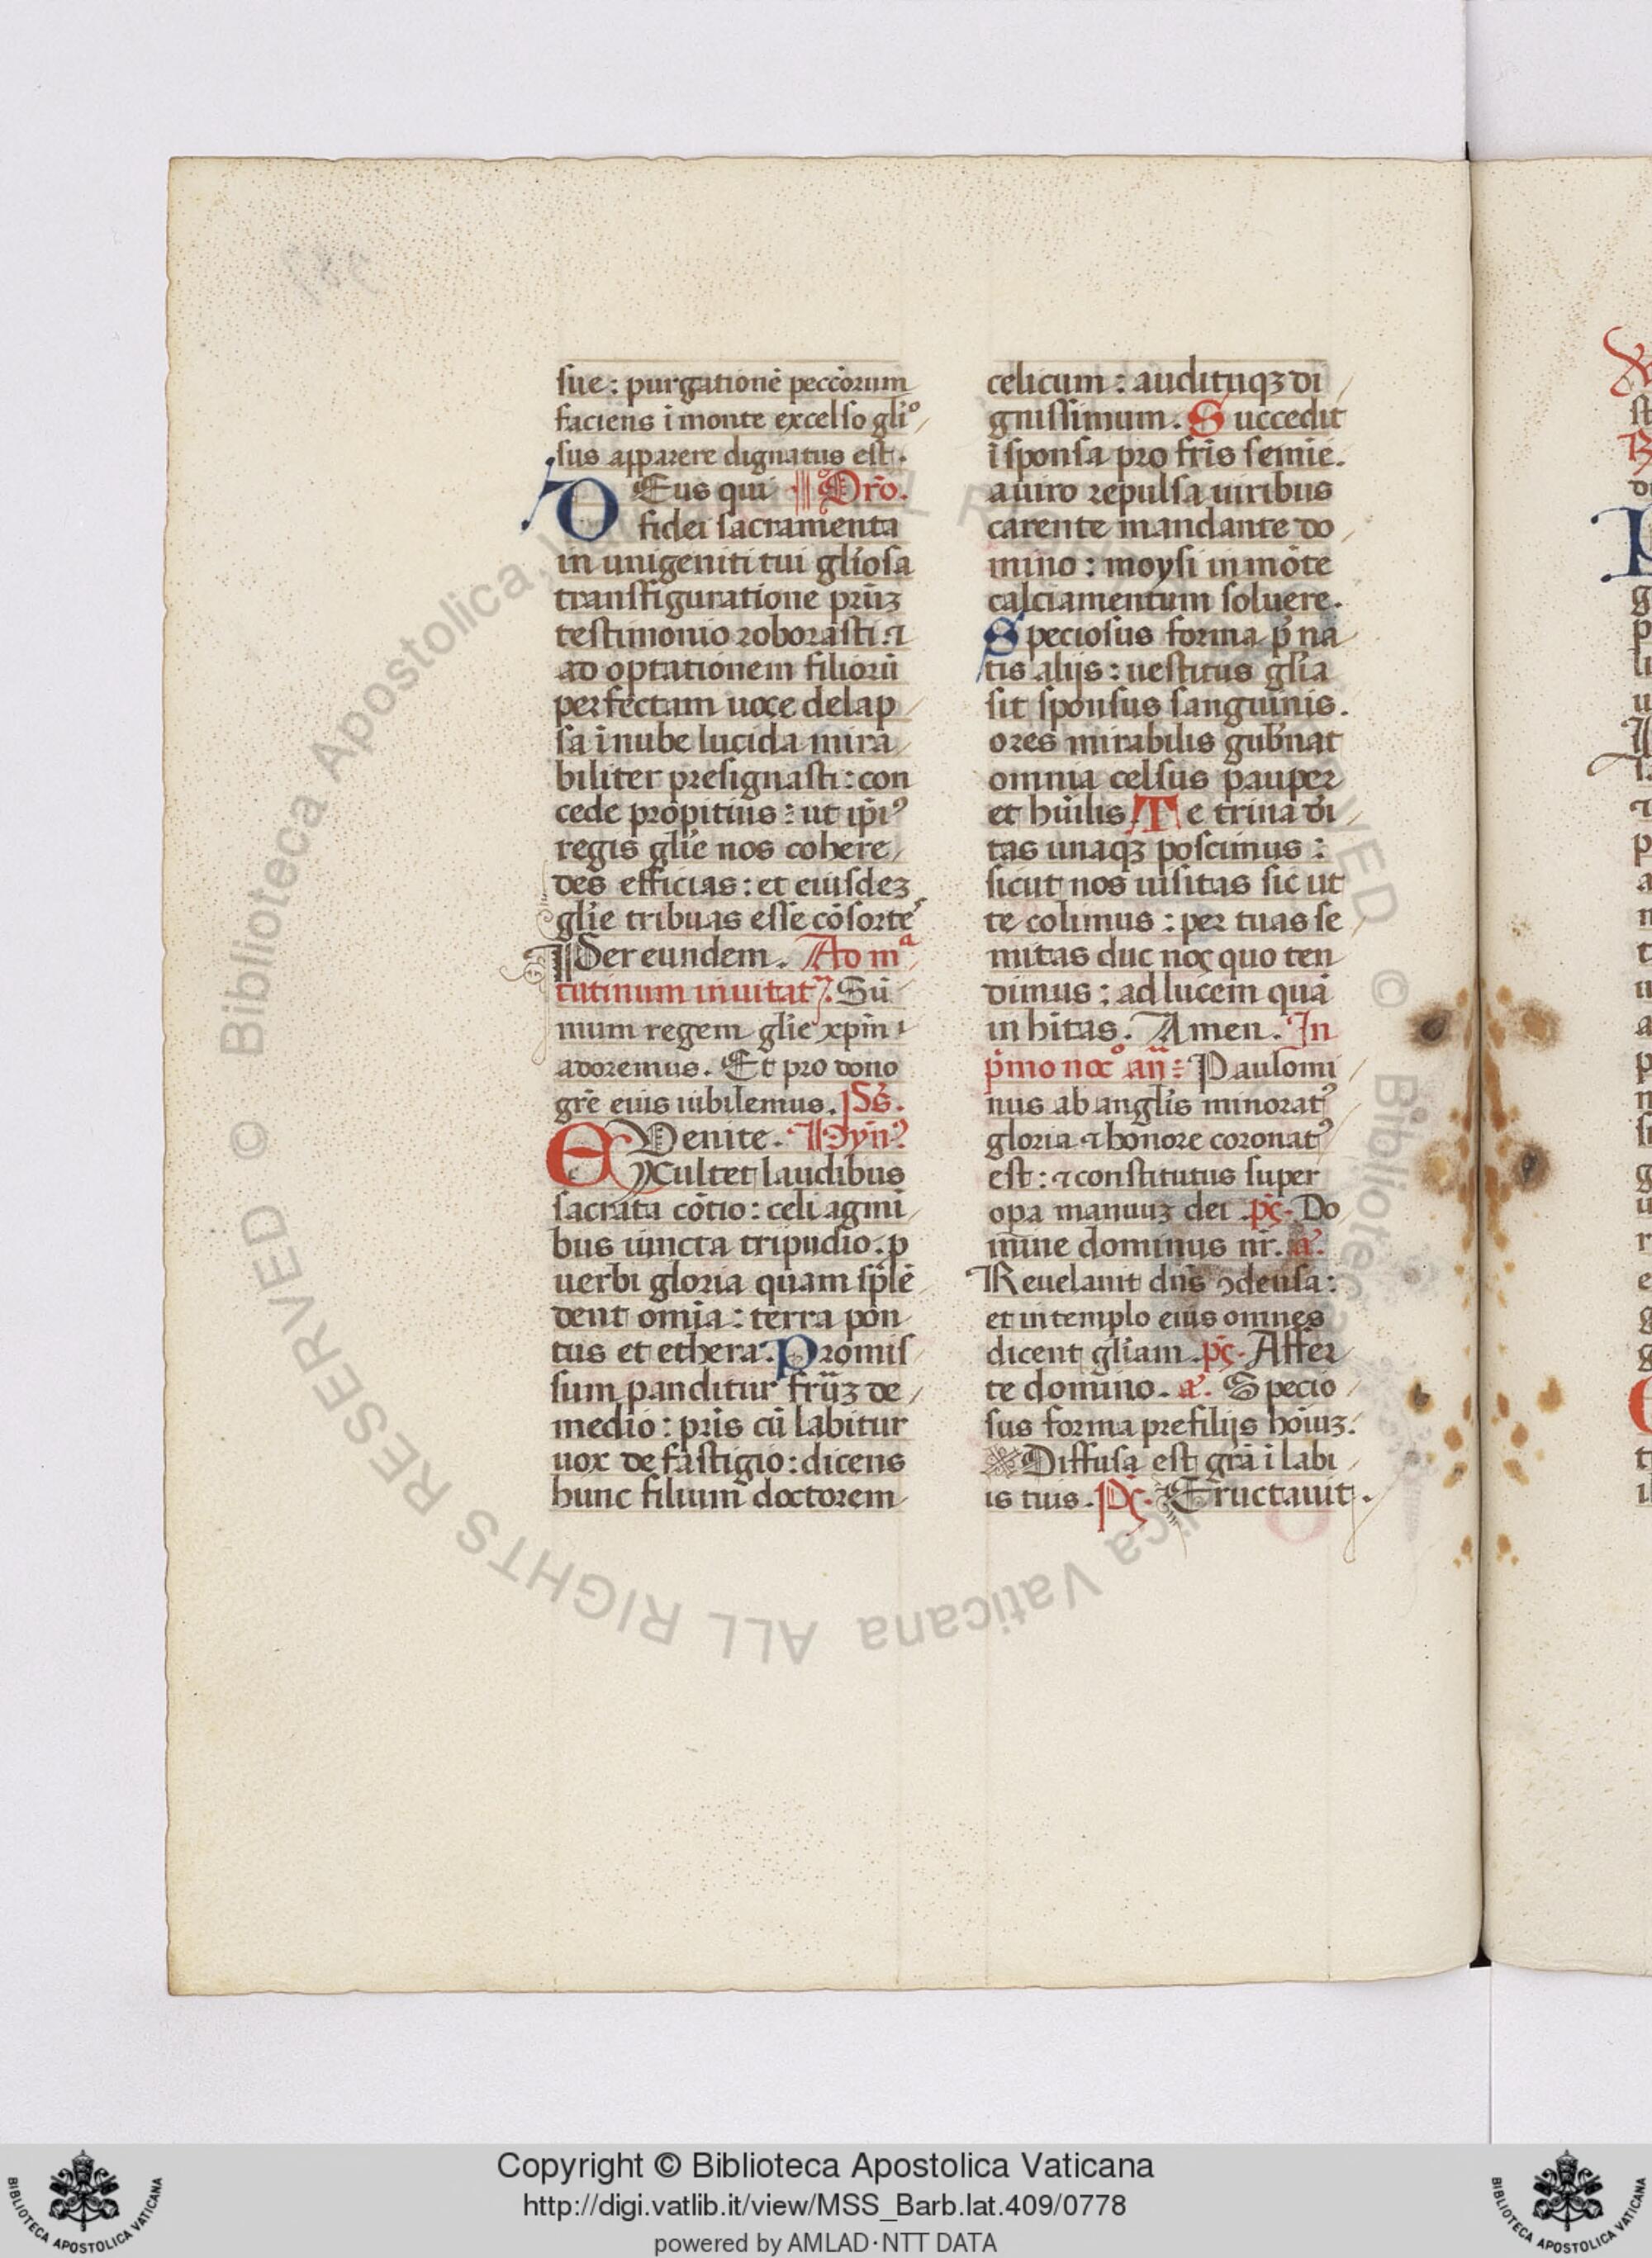 sue : purgationē peccōrum
faciens ī monte excelso gliº
sus apparere dignatus est .
DEus qui ¶ Orō.
fidei sacramenta
in unigeniti tui gliosa
transfiguratione prūꝫ
testimonio roborasti : ⁊
ad optationem filiorū
perfectam uoce delap
sa ī nube lucida mira
biliter presignasti : con
cede propitius : ut ip̄iꝰ
regis glīe nos cohere
des efficias : et eiusdeꝫ
glīe tribuas esse cōsorte
¶ Per eundem. Ad mᵃ
tutinum inuitatᷣ. Sū
mum regem glīe xp̄m
adoremus. Et pro dono
grē eius iubilemus. Ps̄.
Venite. ¶ Hyn̄ꝰ
EXultet laudibus
sacrata cōtio : celi agmī
bus iuncta tripudio . p
uerbi gloria quam splē
dent omīa : terra pon
tus et ethera. Promis
sum panditur fr̄ūꝫ de
medio : pr̄is cū labitur
uox de fastigio : dicens
hunc filium doctorem
celicum : audituqꝫ di
gnissimum. Succedit
ī sponsa pro fr̄is semīe.
a uiro repulsa uiribus
carente mandante do
mino : moysi in mōte
calciamentum soluere.
Speciosus forma p̄ na
tis alijs : uestitus glīa
sit sponsus sanguinis.
ores mirabilis gub̄nat
omnia celsus pauper
et hūilis. Te trina di
tas unaqꝫ poscimus :
sicut nos uisitas sic ut
te colimus : per tuas se
mitas duc nos quo ten
dimus : ad lucem quā
inhītas. Amen. In
p̄mo nocº an̄ : Paulomi
nus ab anglīs minoratꝰ
gloria ⁊ honore coronatꝰ
est : ⁊ constitutus super
opa manuuꝫ dei . ps̄. Do
mine dominus nr̄. a.
Reuelauit dn̄s ꝯdensa :
et in templo eius omnes
dicent glīam . ps̄. Affer
te domino. a. Specio
sus forma pre filijs hoīuꝫ.
Diffusa est gr̄a ī labi
is tuis. Ps̄. Eructauit .
Copyright © Biblioteca Apostolica Vaticana
http://digi.vatlib.it/view/MSS_Barb.lat.409/0778
powered by AMLAD·NTT DATA
BIBLIOTECA APOSTOLICA VATICANA
BIBLIOTECA APOSTOLICA VATICANA
© Biblioteca Apostolica Vaticana ALL RIGHTS RESERVED